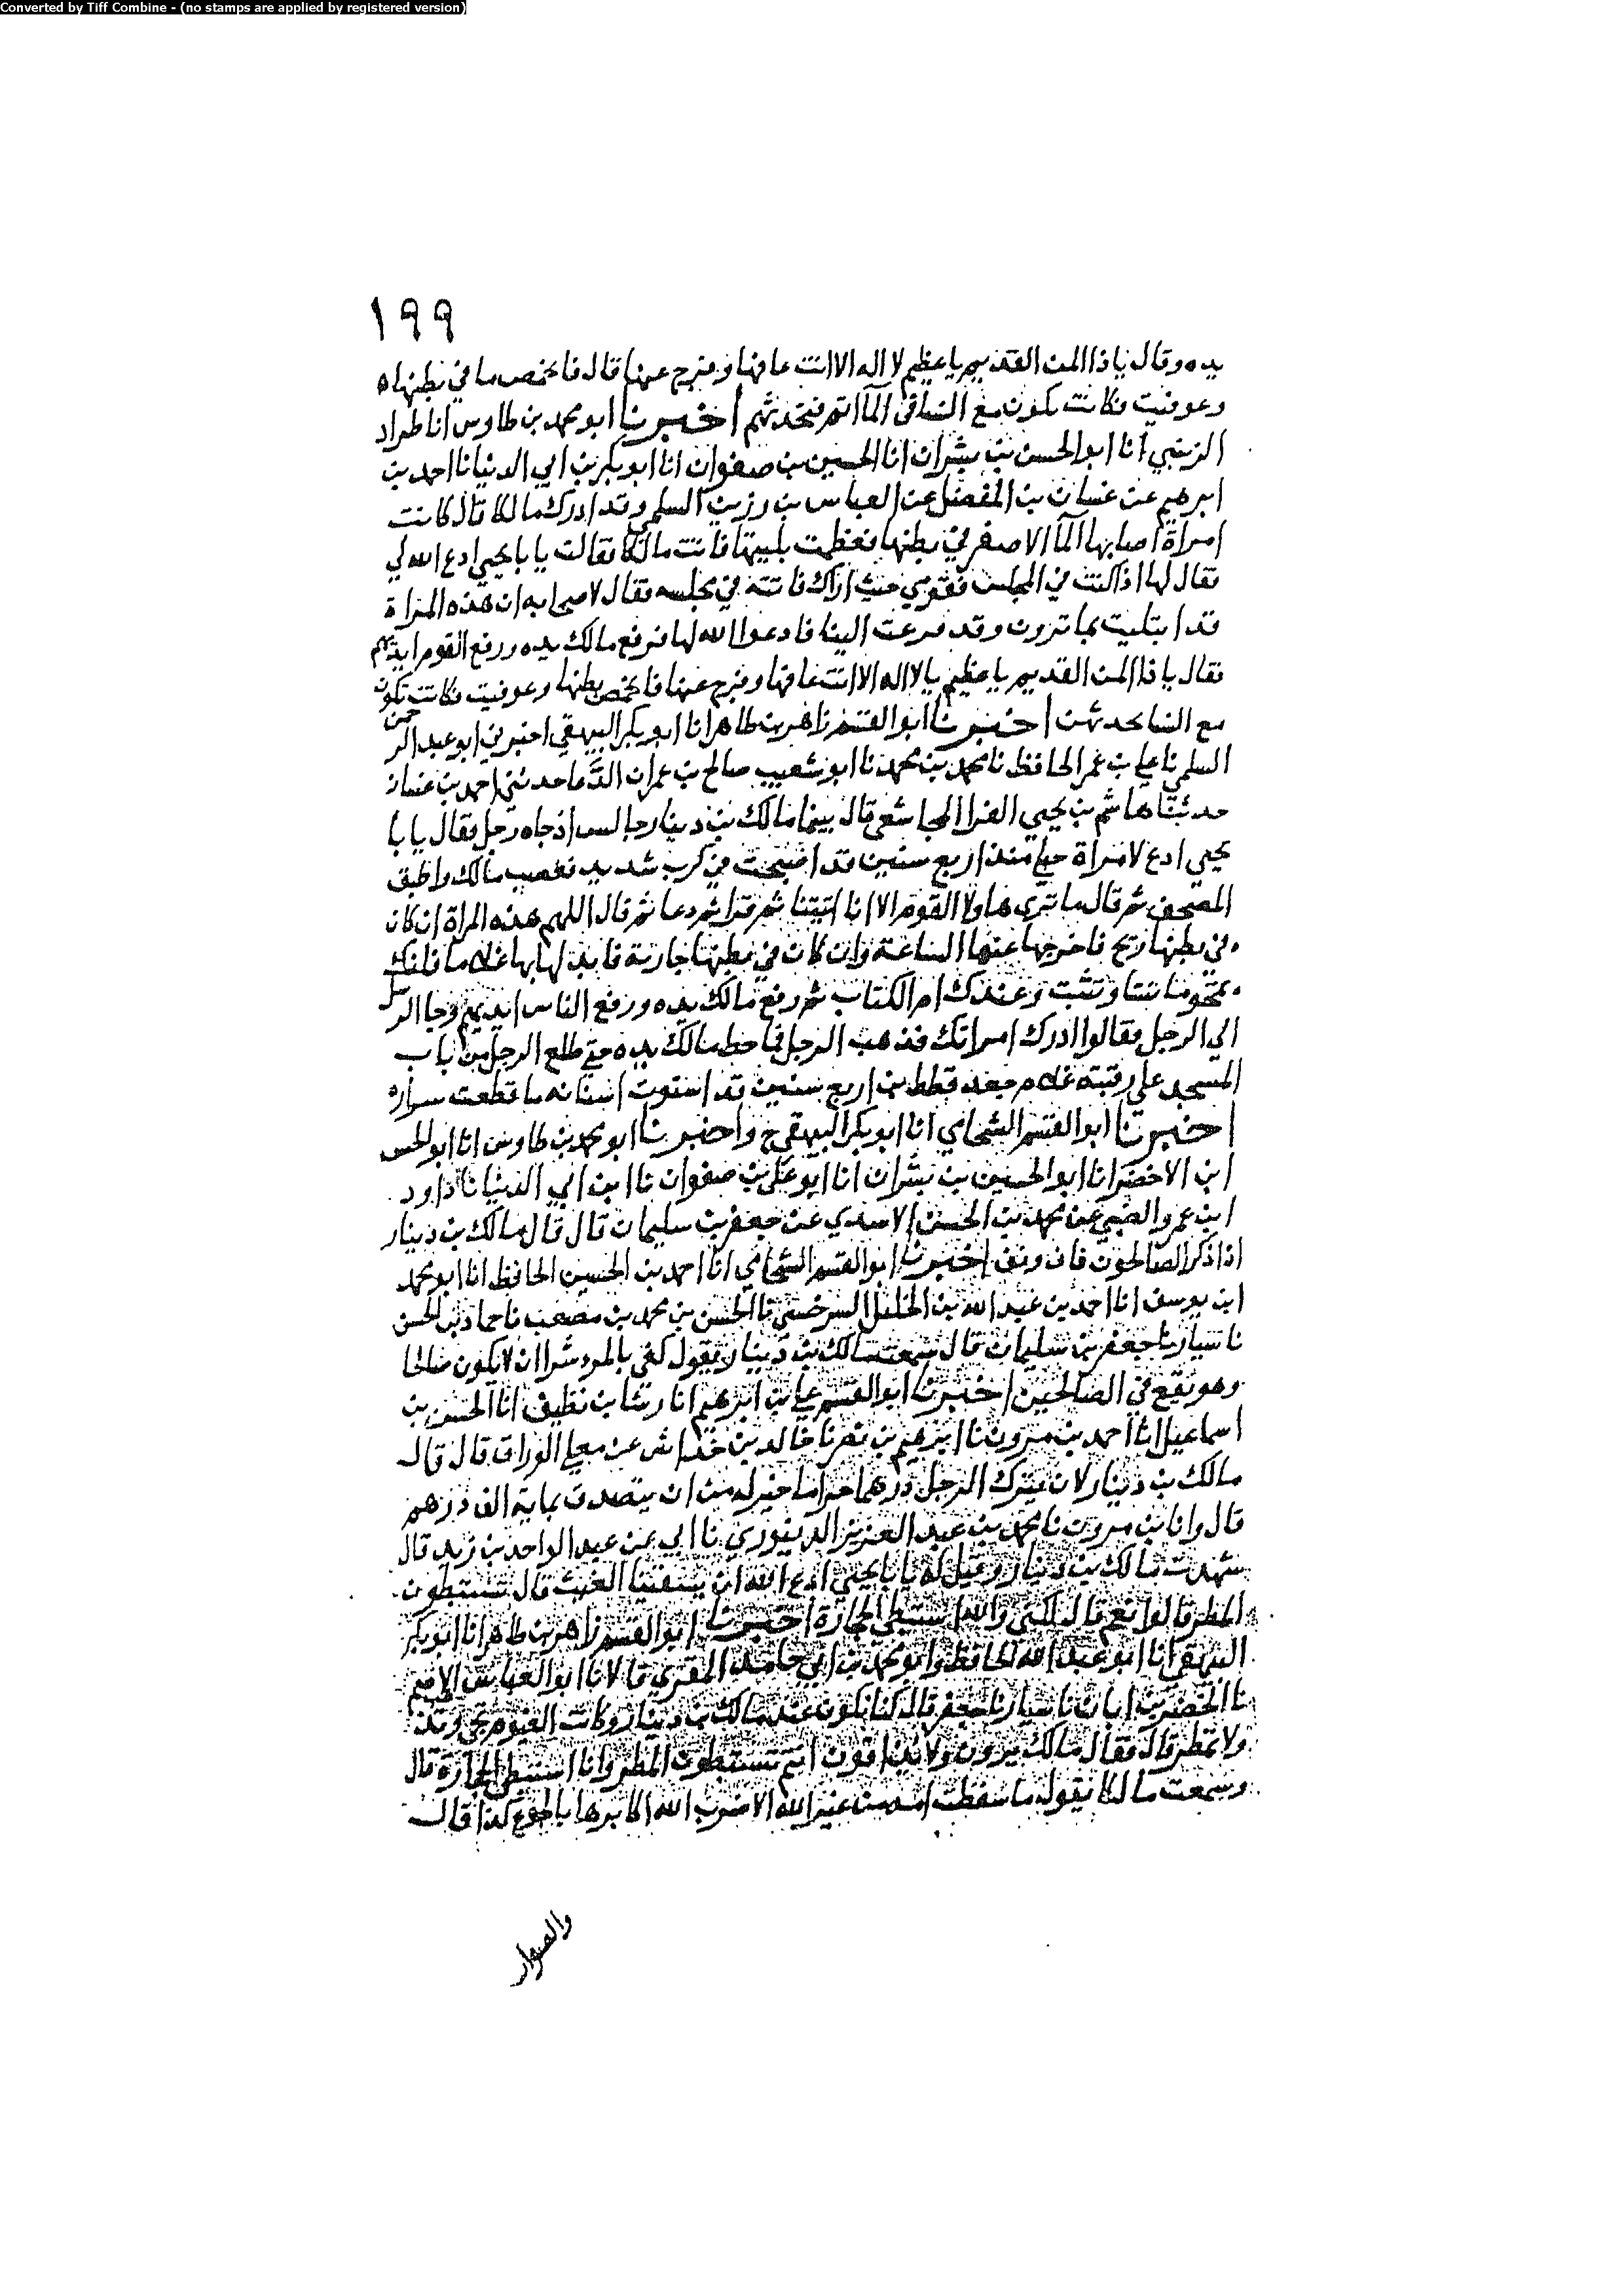 Converted by Tiff Combine - (no stamps are applied by registered version)
١٩٩
يده وقال ياذا المن القديم يا عظيم لا اله الا انت عافها وفرج عنها قال فانخمص ما في بطنها
وعوفيت فكانت تكون مع النسا فتحدثهم اخبرنا ابو محمد بن طاوس انا طراد
الزينبي انا ابو الحسن بن بشران انا الحسين بن صفوان انا ابو بكر بن ابي الدنيا نا احمد بن
ابرهيم عن غسان بن المفضل عن العباس بن رزين السلمي وقد ادرك مالكا قال كانت
امراة اصابها الما الاصفر في بطنها فعظمت بليتها فاتت مالكا فقالت يا با يحيي ادع الله لي
فقال لها اذا كنت في المجلس فقومي حيث اراك فاتته في مجلسه فقال لاصحابه ان هذه المراة
قد ابتليت بما ترون وقد فزعت الينا فادعوا الله لها فرفع مالك يده ورفع القوم ايديهم
فقال ياذا المن القديم يا عظيم يا لا اله الا انت عافها وفرج عنها فانخمص بطنها وعوفيت فكانت تكون
مع النسا تحدثهن اخبرنا ابو القسم زاهر بن طاهر انا ابو بكر البيهقي اخبرني ابو عبد الرحمن
السلمي نا علي بن عمر الحافظ نا محمد بن محمد نا ابو شعيب صالح بن عمران الدعا حدثني احمد بن غسان
حدثنا هاشم بن يحيي الفرا المجاشعي قال بينما مالك بن دينار جالس اذ جاه رجل فقال يا با
يحيي ادع لامراة حبلي منذ اربع سنين قد اصبحت في كرب شديد فغضب مالك واطبق
المصحف ثم قال ما تري هاولا القوم الا انا انبيا ثم قرا ثم دعا ثم قال اللهم هذه المراة ان كان
في بطنها ريح فاخرجها عنها الساعة وان كان في بطنها جارية فابدلها بها غلاما فانك
تمحو ما تشا وتثبت وعندك ام الكتاب ثم رفع مالك يده ورفع الناس ايديهم وجا الرسول
الي الرجل فقالوا ادرك امراتك فذهب الرجل فما حط مالك يده حتي طلع الرجل من باب
المسجد علي رقبته غلام جعد قطط بن اربع سنين قد استوت اسنانه ما قطعت سراره
اخبرنا ابو القسم الشحامي انا ابو بكر البيهقي ح واخبرنا ابو محمد بن طاوس انا ابو الحسن
ابن الاخضر انا ابو الحسين بن بشران انا ابو علي بن صفوان نا ابن ابي الدنيا نا داود
ابن عمرو الضبي عن محمد بن الحسن الاسدي عن جعفر بن سليمان قال قال مالك بن دينار
اذا ذكر الصالحون فاف وتف اخبرنا ابو القسم الشحامي انا احمد بن الحسين الحافظ انا ابو محمد
ابن يوسف انا احمد بن عبد الله بن الخليل السرخسي نا الحسن بن محمد بن مصعب نا حماد بن الحسن
نا سيار نا جعفر بن سليمان قال سمعت مالك بن دينار يقول كفي بالمرء شرا ان لا يكون صالحا
وهو يقع في الصالحين اخبرنا ابو القسم علي بن ابرهيم انا رشا بن نظيف انا الحسن بن
اسماعيل انا احمد بن مرون نا ابرهيم بن نصر نا خالد بن خداش عن معلي الوراق قال قال
مالك بن دينار لان يترك الرجل درهما حراما خير له من ان يتصدق بماية الف درهم
قال وانا بن مرون نا محمد بن عبد العزيز الدينوري نا ابي عن عبد الواحد بن زيد قال
شهدت مالك بن دينار وقيل له يا با يحيي ادع الله ان يسقينا الغيث قال تستبطون
المطر قالوا نعم قال لكني والله استبطي الحجارة اخبرنا ابو القسم زاهر بن طاهر انا ابو بكر
البيهقي انا ابو عبد الله الحافظ وابو محمد بن ابي حامد المقري قالا نا ابو العباس الاصم
نا الخضر بن ابان نا سيار نا جعفر قال كنا نكون عند مالك بن دينار وكانت الغيوم تجي وتذهب
ولا تمطر قال فقال مالك يرون ولا يذاقون انتم تستبطون المطر وانا استبطي الحجارة قال
وسمعت مالكا يقول ما سقطت امة من عين الله الا ضرب الله اكابرها بالجوع كذا قال
والصواب